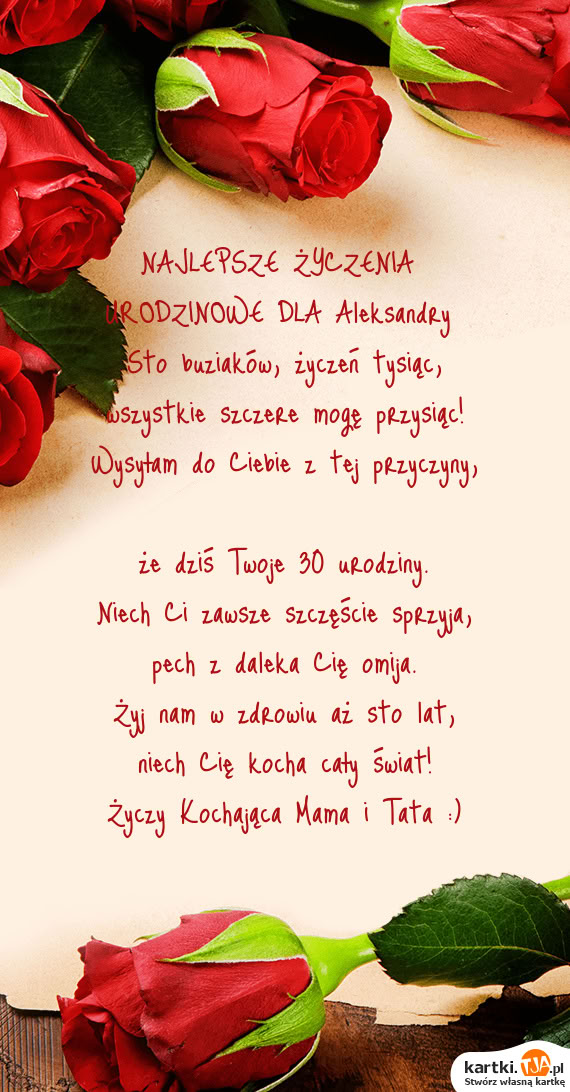 NAJLEPSZE ŻYCZENIA
URODZINOWE DLA Aleksandry
Sto buziaków, życzeń tysiąc,
wszystkie szczere mogę przysiąc!
Wysyłam do Ciebie z tej przyczyny,
że dziś Twoje 30 urodziny.
Niech Ci zawsze szczęście sprzyja,
pech z daleka Cię omija.
Żyj nam w zdrowiu aż sto lat,
niech Cię kocha cały świat!
Życzy Kochająca Mama i Tata :)
kartki.TJA.pl
Stwórz własną kartkę